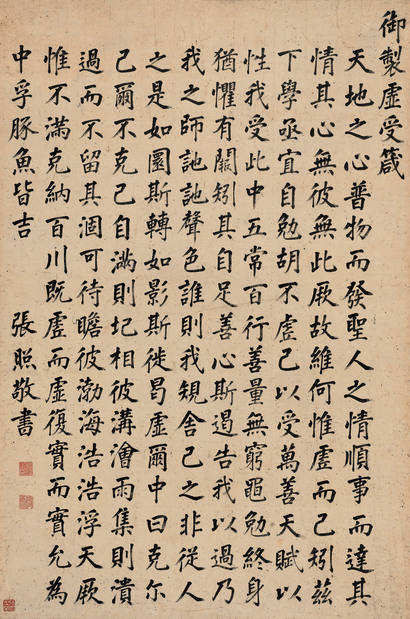 御製虛受箴
天地之心普物而發聖人之情順事而達其
情其心無彼無此厥故維何惟虛而已矧茲
下學亟宜自勉胡不虛己以受萬善天賦以
性我受此中五常百行善量無窮黽勉終身
猶懼有闕矧其自足善心斯遏告我以過乃
我之師訑訑聲色誰則我規舍己之非從人
之是如圜斯轉如影斯徙曷虛爾中曰克尔
己爾不克己自滿則圮相彼溝澮雨集則潰
過而不留其涸可待瞻彼渤海浩浩浮天厥
惟不滿克納百川既虛而虛復實而實允為
中孚豚魚皆吉 張照敬書